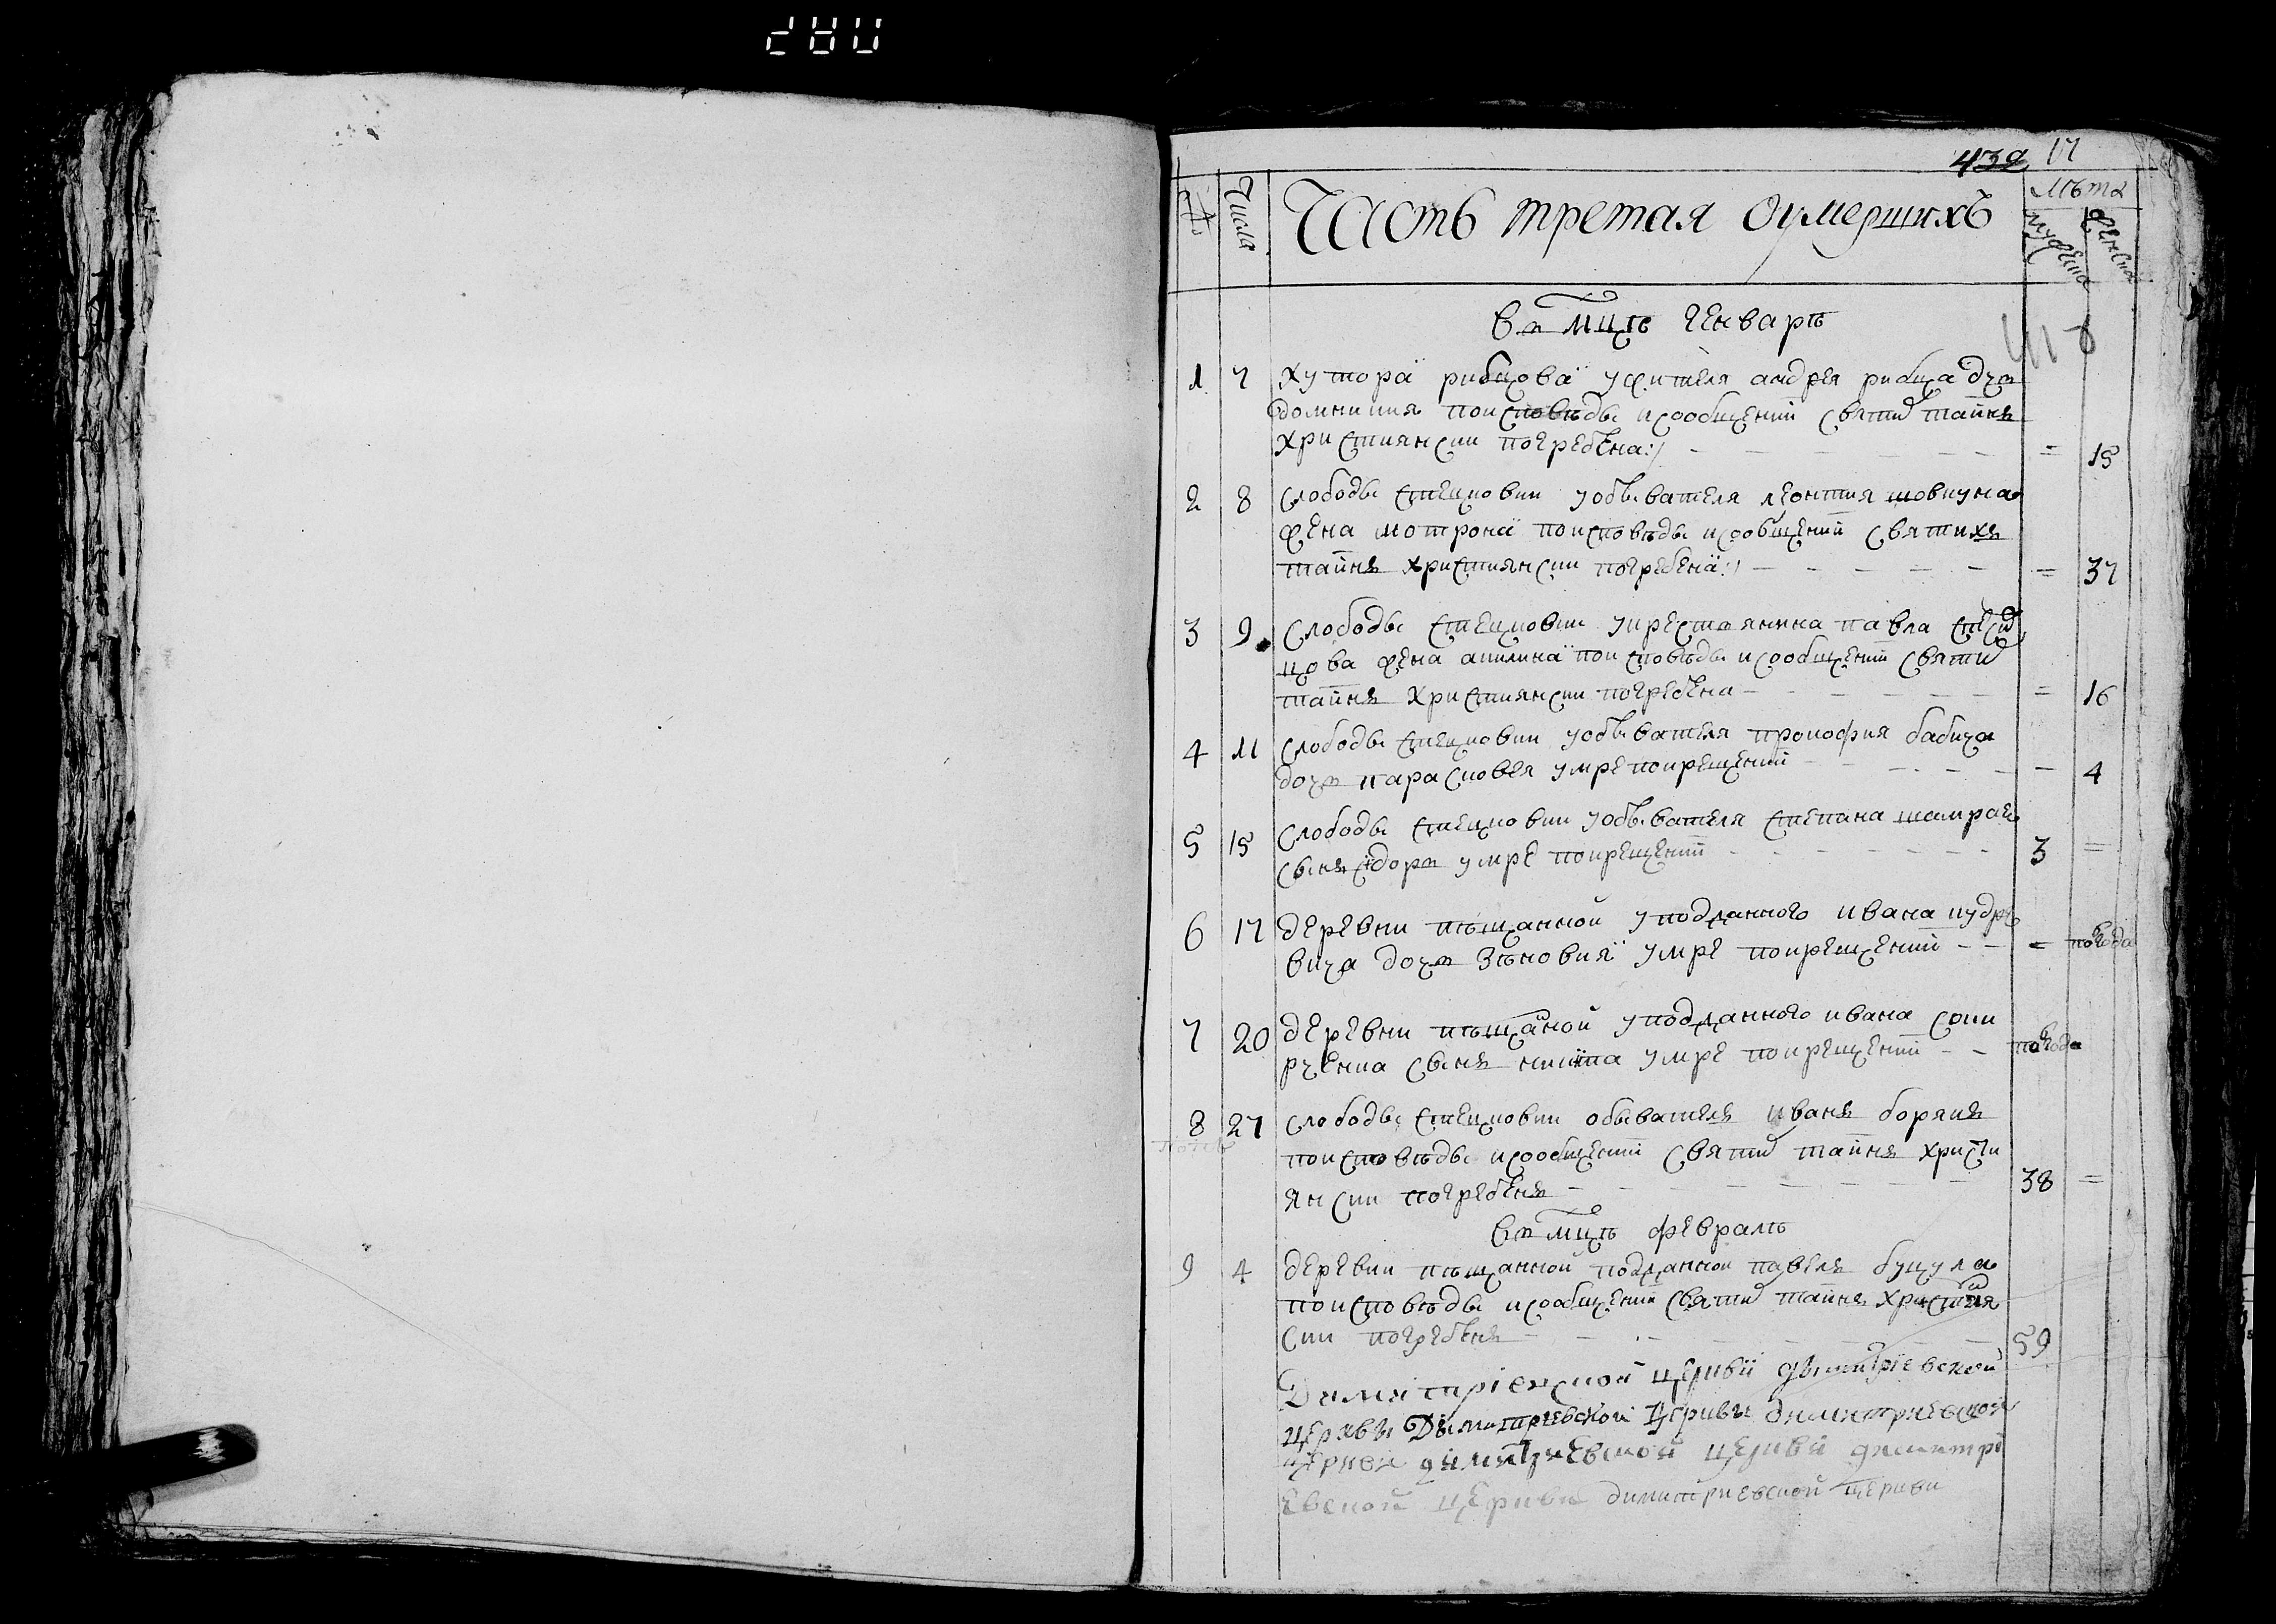 439 17
№ Числа Часть третая оумершихъ Лѣта
мужеска женска
въ мцѣ генварѣ
1 7 хутора рибцова у жителя андрея рибца дчъ
домникия по исповѣды и сообщении святих тайнъ
християнски погребена:/ = 15
2 8 слободы стецковки у обывателя леонтия шовкуна
жена мотрона по исповѣды и сообщении святихъ
тайнъ християнски погребена:/ = 37
3 9 слободы стецковки у крестьянина павла
жена акилина по исповѣды и сообщении святих
тайнъ християнски погребена = 16
4 11 слободы стецковки у обывателя прокофия бабича
дочъ парасковея умре по крещении 4
5 15 слободы стецковки у обывателя степана шамрае
сынъ сидоръ умре по крещении 3 =
6 17 деревни пѣщанной у подданного ивана кудре
вича дочъ зѣновия умре по крещении = полгода
7 20 деревни пѣщаной у подданного ивана соки
рченка сынъ никита умре по крещении полгода
8 27 слободы стецковки обыватель иванъ борякъ
по исповѣды и сообщении святих тайнъ христи
янски погребенъ 38 =
въ мцѣ февралѣ
9 4 деревни пѣщанной подданной павелъ буцула
по исповѣды и сообщении святих тайнъ християн
ски погребенъ 59
Димитриевской церкви димитриевской
церквы Димитриевской Церквы димитриевской
церкви димитриевской церкви димитри
евской церкви димитриевской церкви